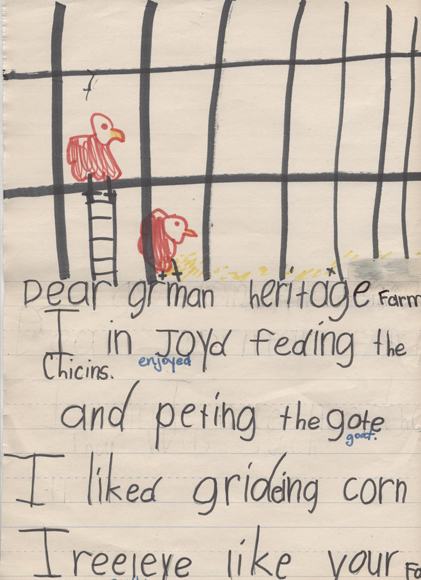 Dear grman heritage Farm
I in Joyd feding the
Chicins. enjoyed
and peting the gote
goat.
I liked grideing corn
I reeleye like your